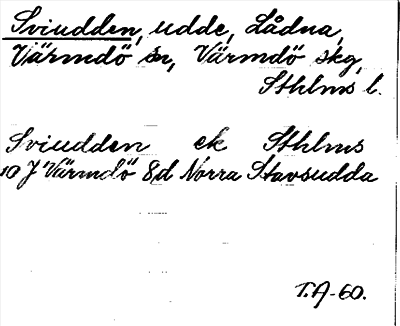 Sviudden, udde, Lådna,
Värmdö sn, Värmdö skg,
Sthlms l.
Sviudden ek Sthlms
10 J Värmdö 8d Norra Stavsudda
T.A-60.